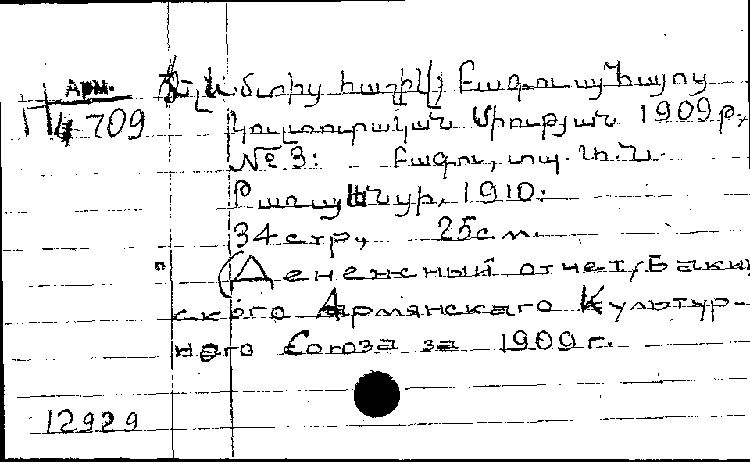 Арм.
П/4 709
հաշիվ Բագուայ Հայոց
Կուլտուրական Միության 1909 թ,
№ 3: Բագու, տպ. Ն.
1910:
34 стр., 25 см.
(Денежный отчет, Бакин-
ского Армянскаго Культур-
наго Союза за 1909 г.
12929